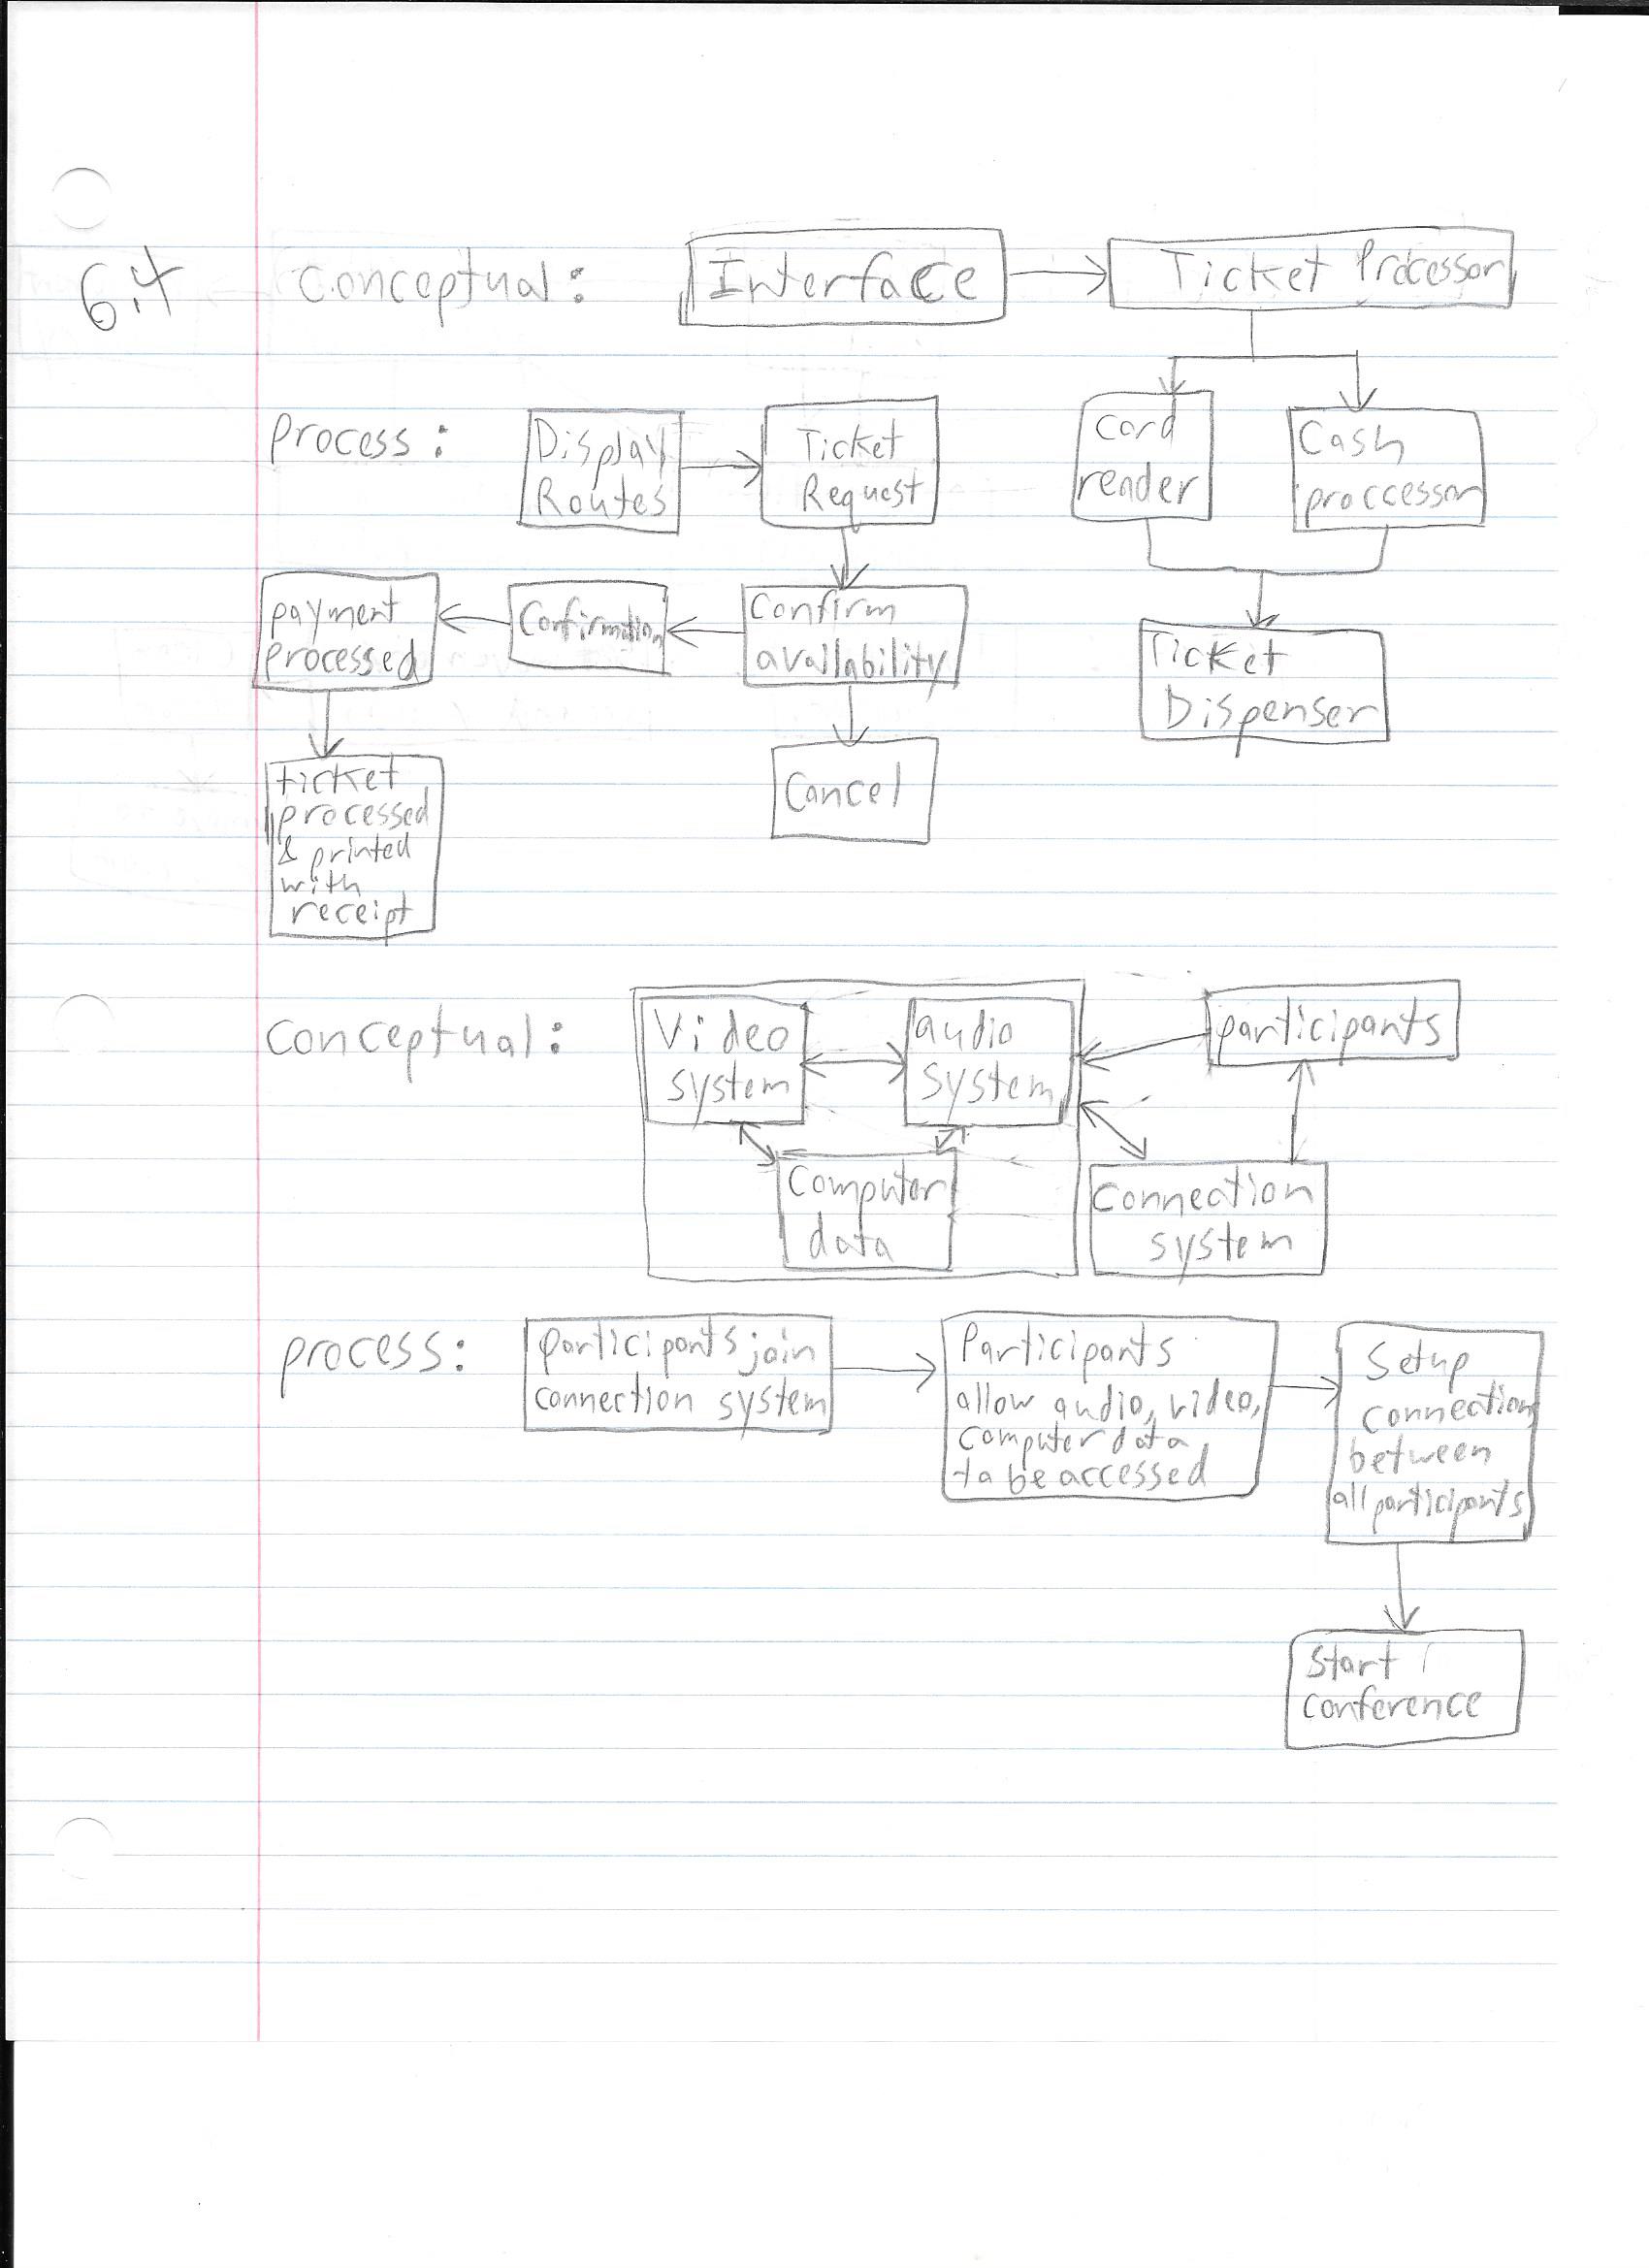 6.4
Conceptual:
Interface
Ticket Processor
Process:
Display
Routes
Ticket
Request
Card
render
Cash
proccessor
payment
processed
Confirmation
Confirm
availability
Ticket
Dispenser
ticket
processed
& printed
with
receipt
Cancel
Conceptual:
Video
system
audio
system
participants
Computer
data
Connection
system
process:
participants join
connection system
Participants
allow audio, video,
computer data
to be accessed
Setup
connection
between
all participants
Start
conference